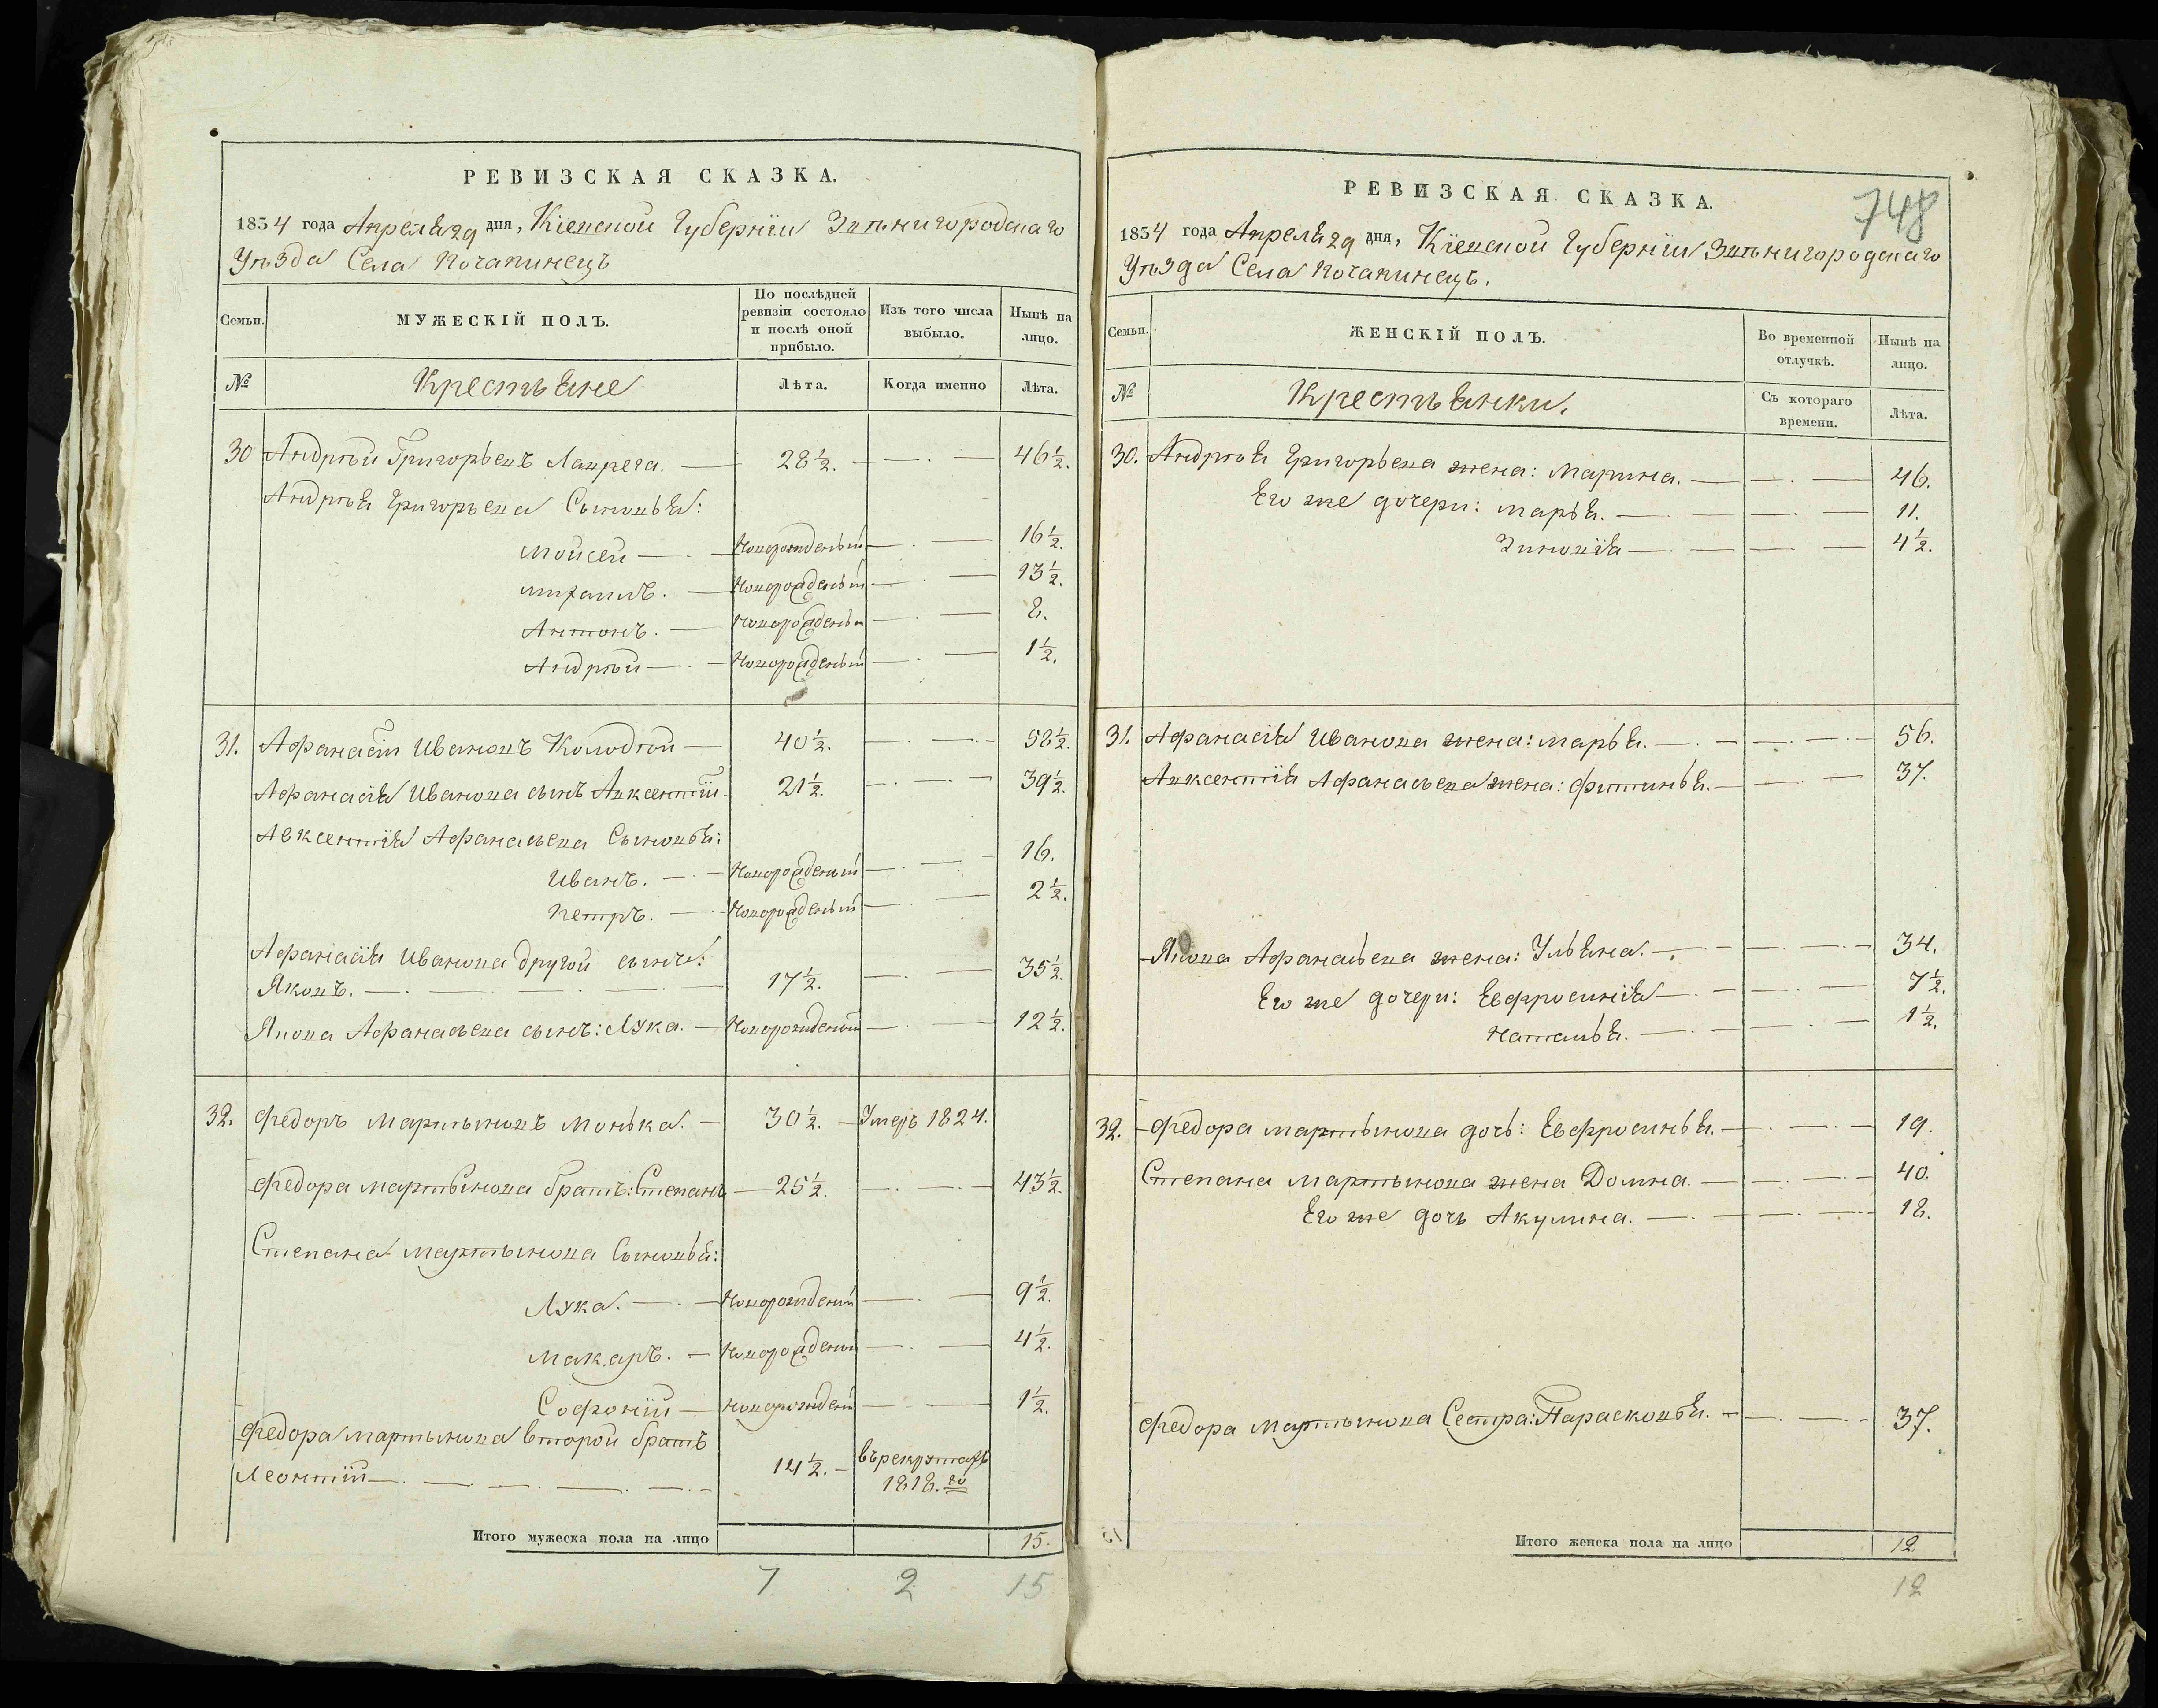 РЕВИЗСКАЯ СКАЗКА.
1834 года Апреля 29 дня, Кіевской Губерніи Звѣнигородскаго
Уѣзда Села Почапинецъ
Семьи.
МУЖЕСКІЙ ПОЛЪ.
По послѣдней ревизіи состояло и послѣ оной прибыло.
Изъ того числа выбыло.
Нынѣ на лицо.
№
Крестьяне
Лѣта.
Когда именно
Лѣта.
30 Андрѣй Григорьевъ Лаврега. 28½. 46½.
Андрѣя Григорьева Сыновья:
Мойсей Новорожденый 16½.
Михаилъ. Новорожденый 13½.
Антонъ. Новорожденый 8.
Андрѣй Новорожденый 1½.
31. Афанасій Ивановъ Колодѣй 40½. 58½.
Афанасія Иванова сынъ Авксентій 21½. 39½.
Авксентія Афанасьева Сыновья:
Иванъ. Новорожденый 16.
Петръ. Новорожденый 2½.
Афанасія Иванова другой сынъ:
Яковъ. 17½. 35½.
Якова Афанасьева сынъ: Лука. Новорожденый 12½.
32. Федоръ Мартыновъ Монька. 30½. Умеръ 1824.
Федора Мартынова братъ: Степанъ 25½. 43½.
Степана Мартынова Сыновья:
Лука. Новорожденый 9½.
Макаръ. Новорожденый 4½.
Софоній новорожденый 1½.
Федора Мартынова второй братъ
Леонтій 14½. въ рекрутахъ 1818.го
Итого мужеска пола на лицо 15.
7 2 15
748
РЕВИЗСКАЯ СКАЗКА.
1834 года Апреля 29 дня, Кіевской Губерніи Звѣнигородскаго
Уѣзда Села Почапинецъ.
Семьи.
ЖЕНСКІЙ ПОЛЪ.
Во временной отлучкѣ.
Нынѣ на лицо.
№
Крестьянки.
Съ котораго времени.
Лѣта.
30. Андрѣя Григорьева жена: Марина. 46.
Его же дочери: Марья. 11.
Зиновія 4½.
31. Афанасія Иванова жена: Марья. 56.
Авксентія Афанасьева жена: Фитинья. 37.
Якова Афанасьева жена: Ульяна. 34.
Его же дочери: Евфросинія 7½.
Наталья. 1½.
32. Федора Мартынова дочь: Евфросинья. 19.
Степана Мартынова жена Домна. 40.
Его же дочь Акулина. 18.
Федора Мартынова Сестра: Парасковья. 37.
Итого женска пола на лицо 12.
12